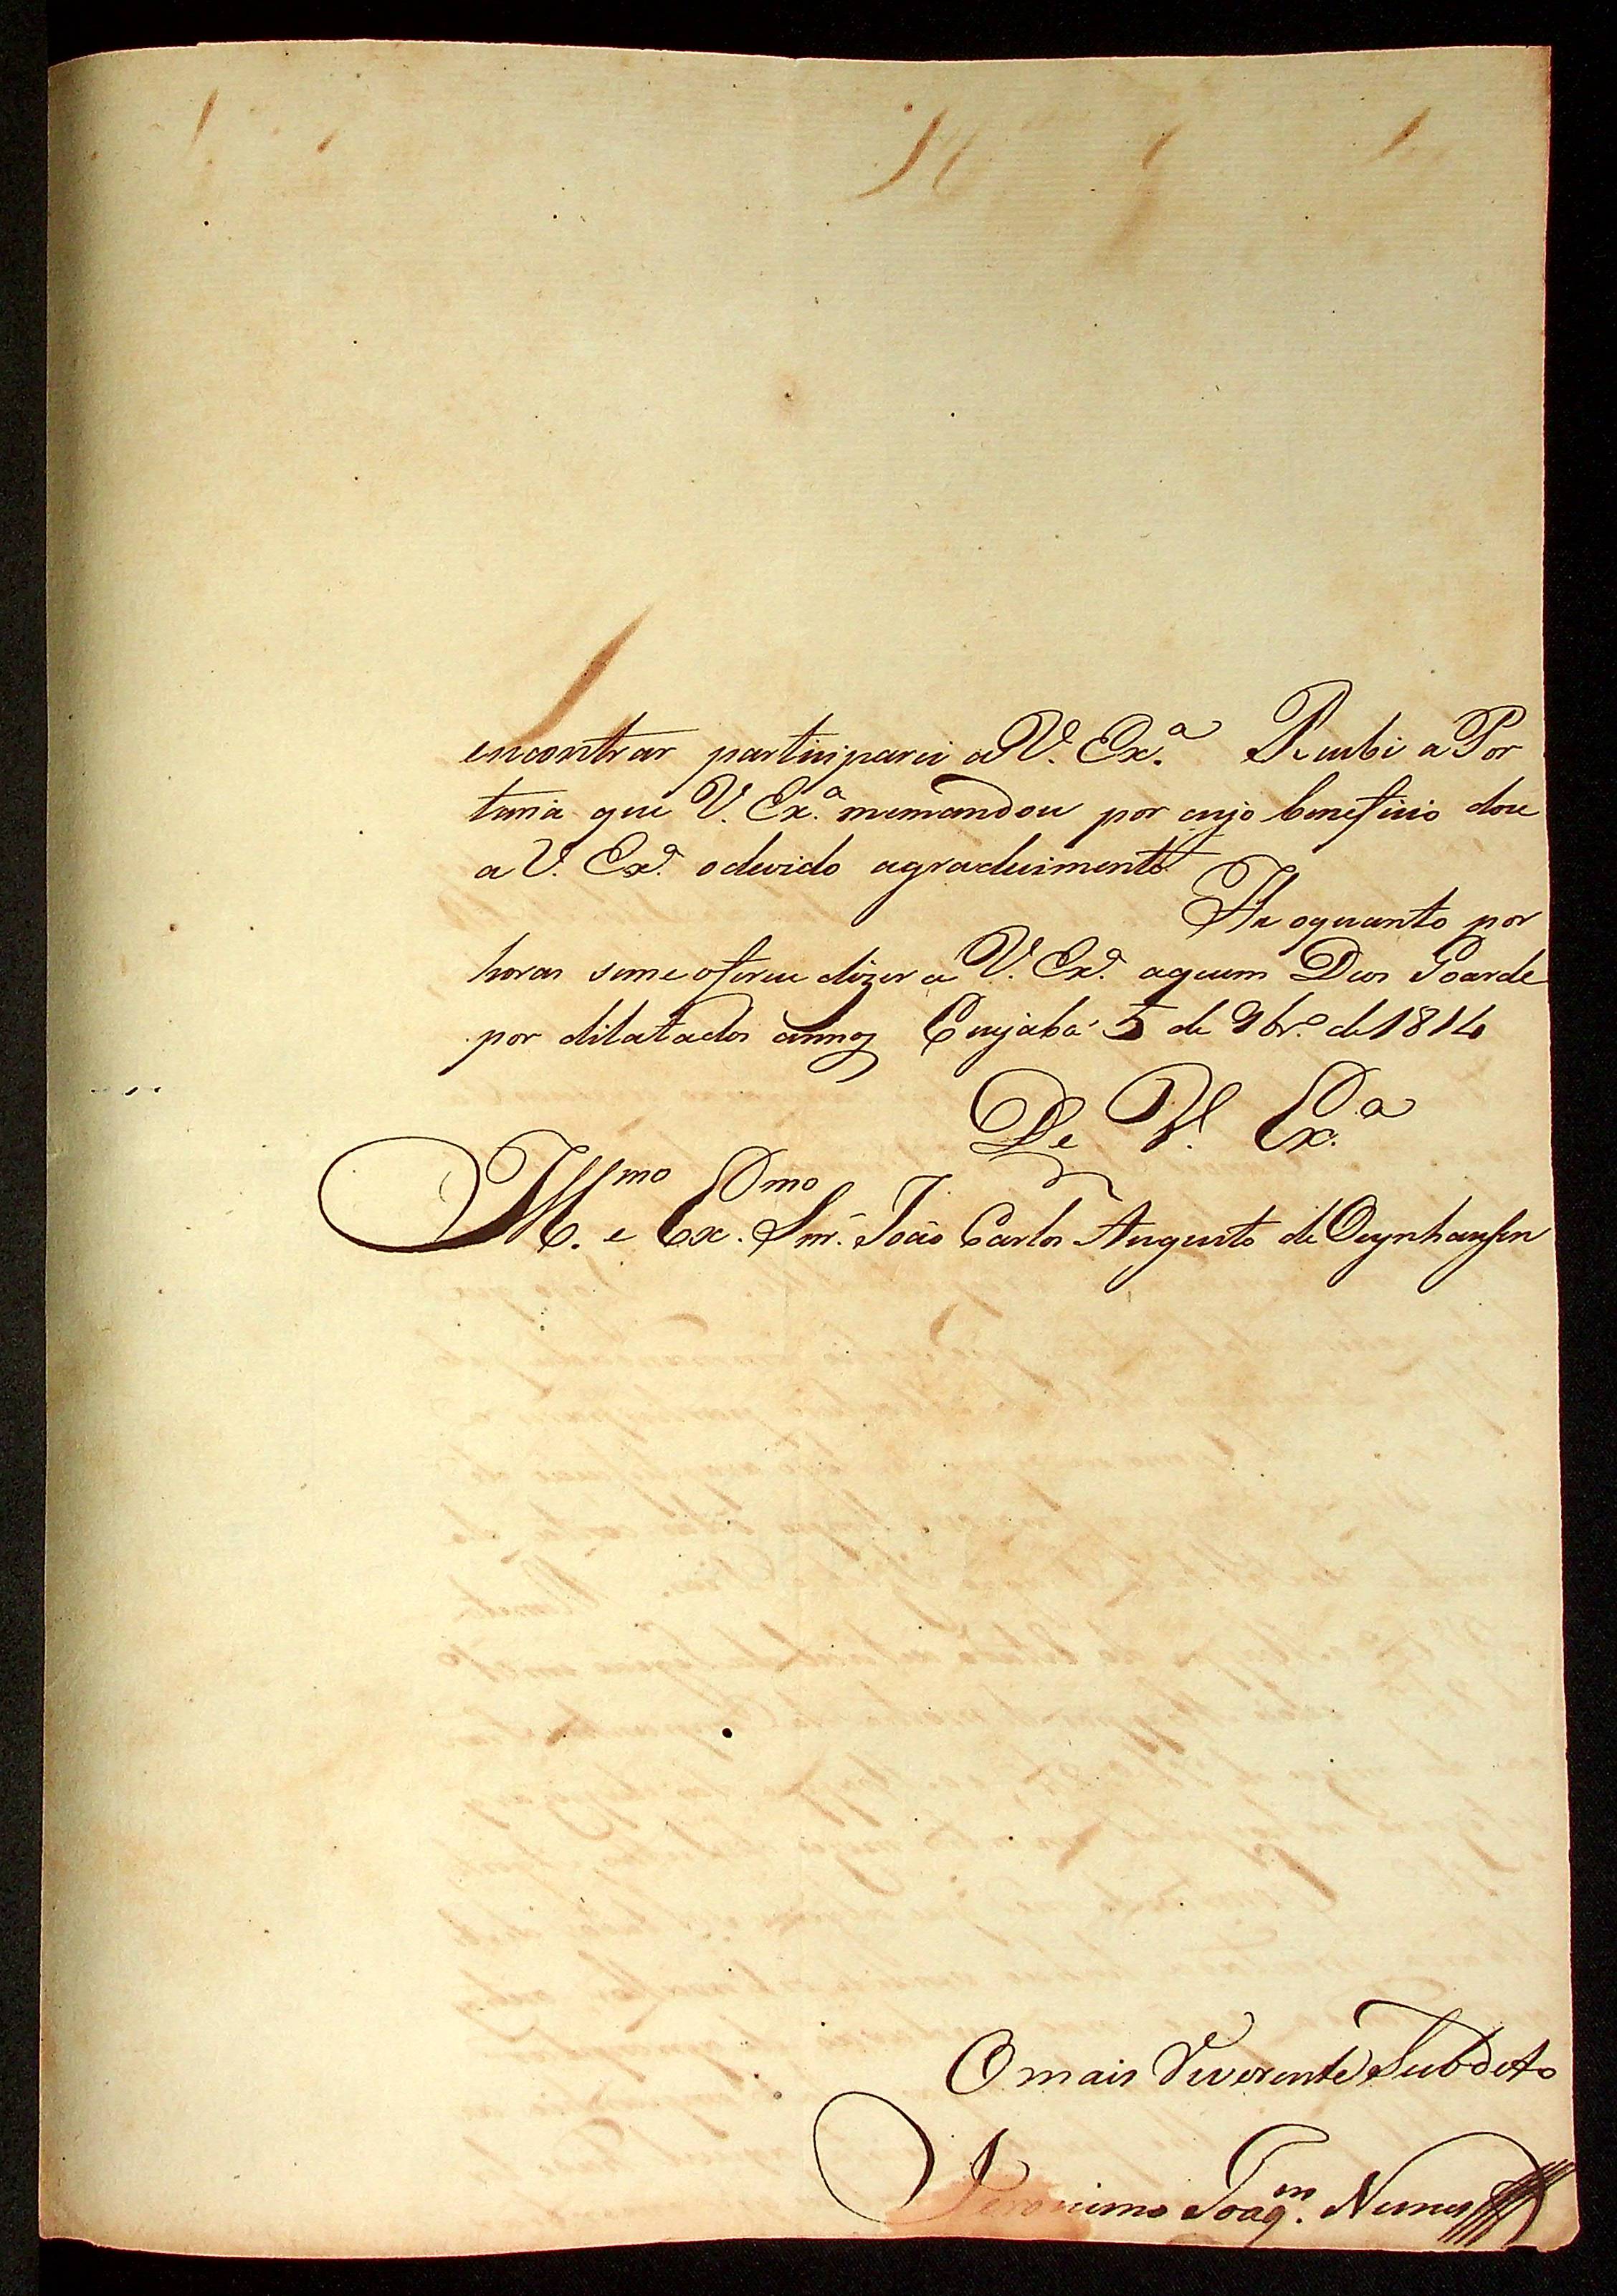 encontrar participarei a V. Ex.ª Recebi a Por
taria que V. Ex.ª memandou por cujo beneficio dou
a V. Ex.ª odevido agradecimento
He oquanto por
horas seme oferece dizer a V. Ex.ª aquem Deos Goarde
por dilatados annos Cuyabá 5 de 9br.º de 1814
De V. Ex.ª
Ill.mo e Ex.mo Snr. João Carlos Augusto de Oeynhausen
O mais Reverente Subdito
Jeronimo Joaq.m Nunes